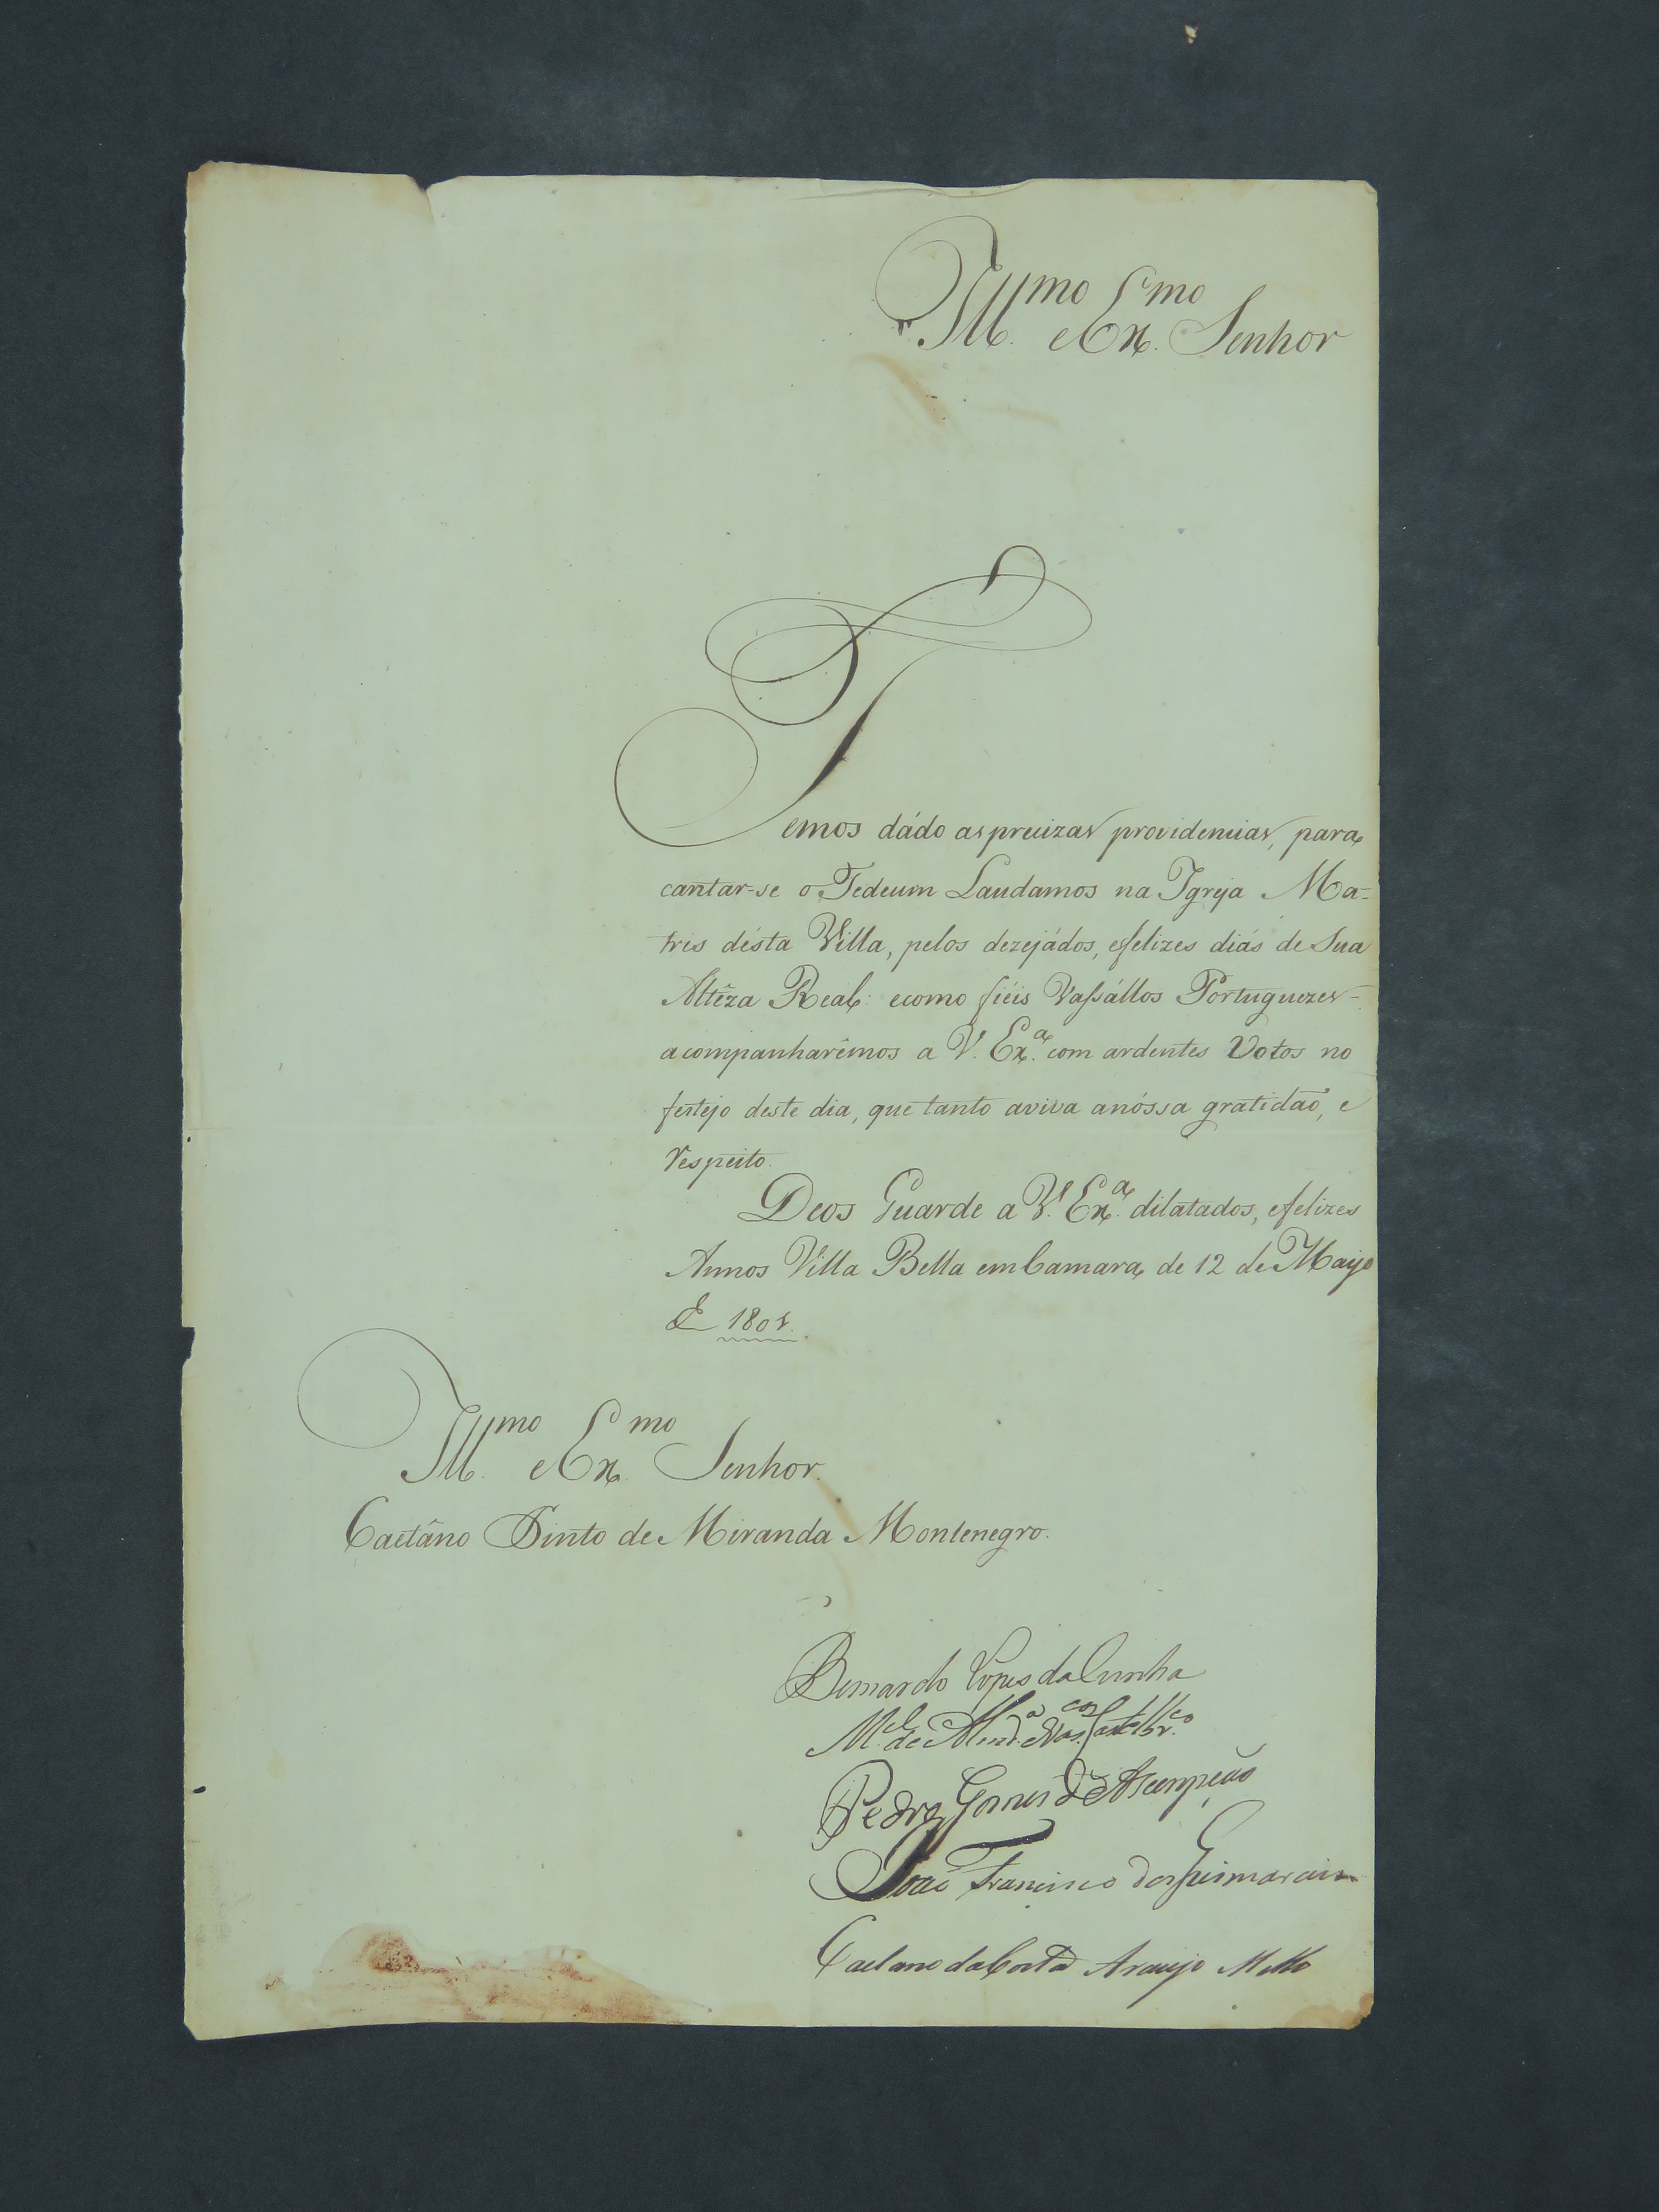 Ill.mo e Ex.mo Senhor
Temos dádo as precizas providencias, para
cantar-se o Tedeum Laudamos na Igreja Ma=
tris désta Villa, pelos dezejádos, efelizes diás de Sua
Altêza Real: ecomo fiéis Vassállos Portuguezes
acompanharêmos a V. Ex.a com ardentes Votos no
festejo deste dia, que tanto aviva anóssa gratidaõ, e
respeito.
Deos Guarde a V. Ex.a dilatados, efelizes
Annos Villa Bella em Camara, de 12 de Mayo
de
Ill.mo e Ex.mo Senhor.
Caetâno Pinto de Miranda Montenegro.
Bernardo Lopes da Cunha
M.el de
Pedro Gomes d Ascenpção
João Francisco dos Guimarains
Caetano da Costa Araujo Mello